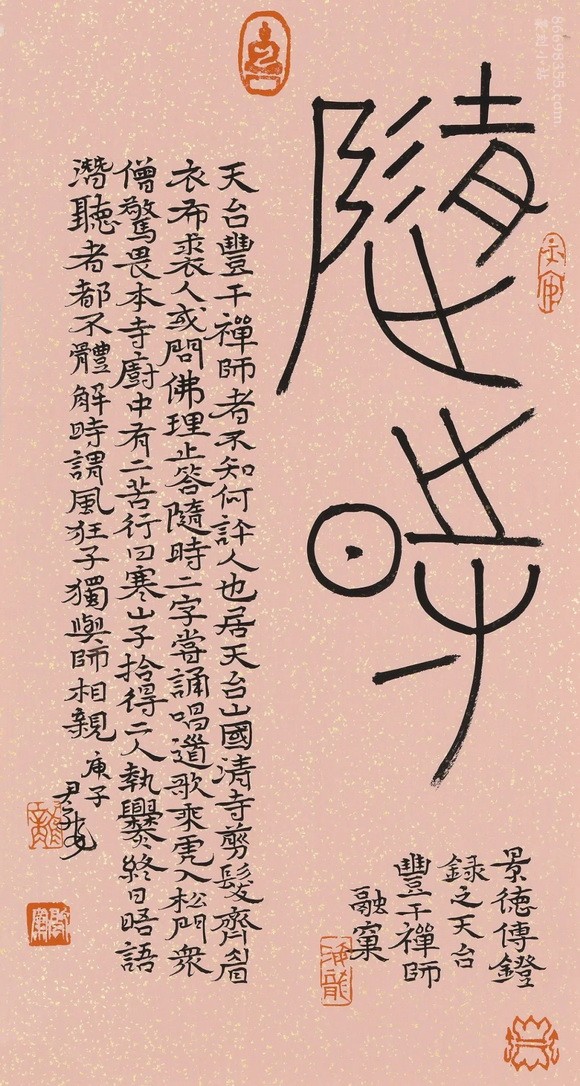 隨時
景德傳鐙
録之天台
豐干禪師
融窠
海龍
天台豐干禪師者不知何許人也居天台山國清寺剪髮齊眉
衣布裘人或問佛理止答隨時二字嘗誦唱道歌乘虎入松門衆
僧驚畏本寺廚中有二苦行曰寒山子拾得二人執爨終日晤語
潛聽者都不體解時謂風狂子獨與師相親
庚子
86698355.com